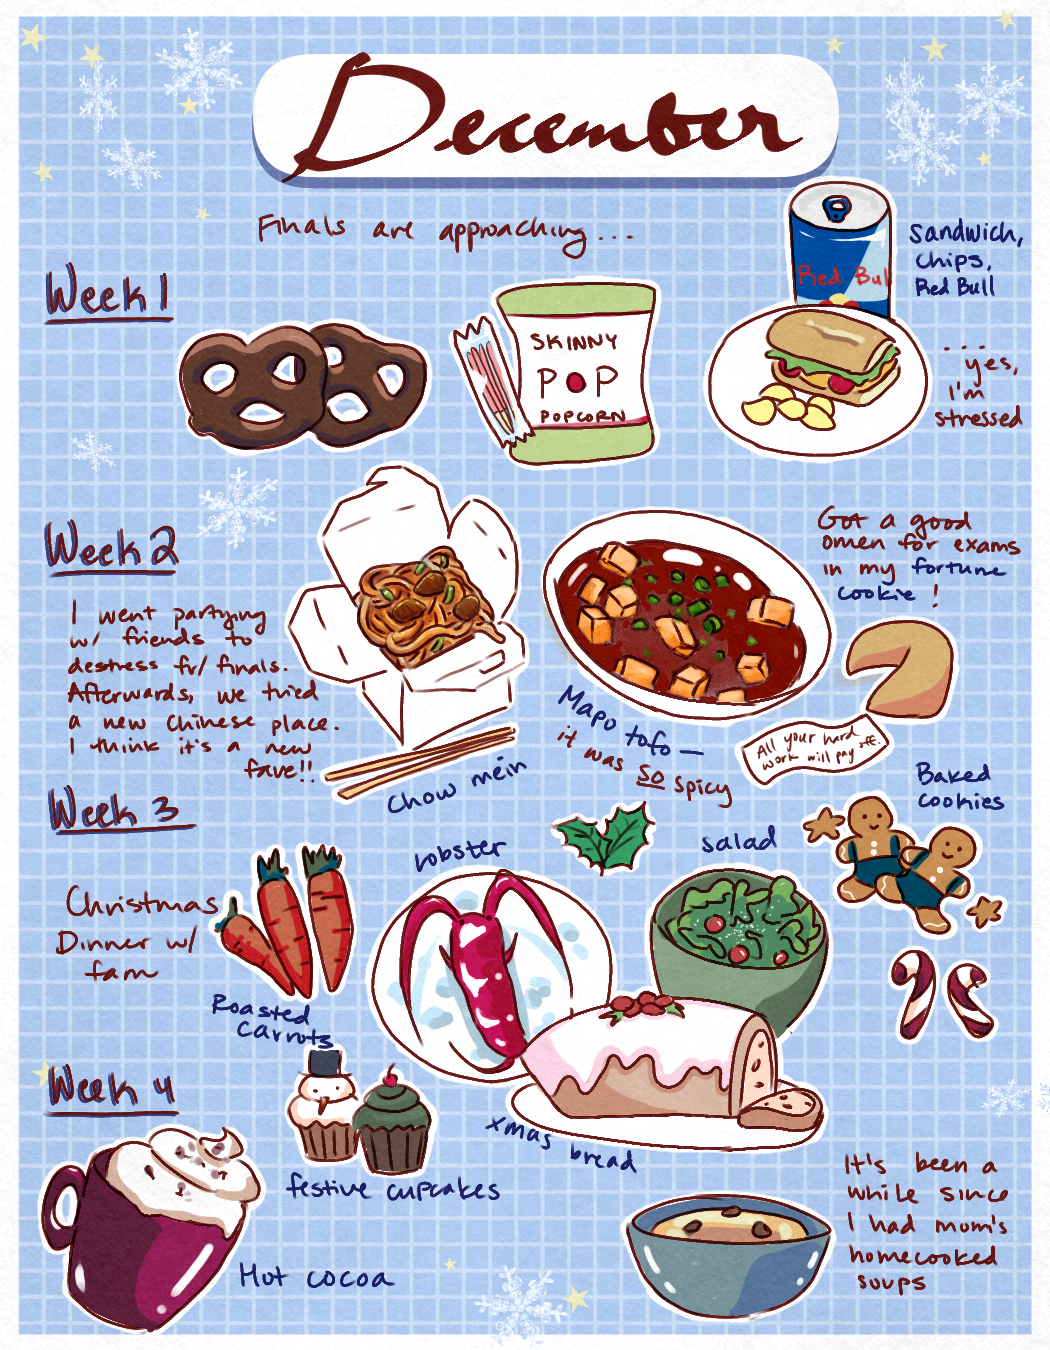 December
Finals are approaching...
Week 1
SKINNY
POP
POPCORN
Red Bul
Sandwich,
chips,
Red Bull
...yes,
I'm
stressed
Week 2
I went partying
w/ friends to
destress fr/ finals.
Afterwards, we tried
a new Chinese place.
I think it's a new
fave!!
chow mein
Mapo tofo—
it was so spicy
Got a good
omen for exams
in my fortune
cookie!
All your hard
work will pay off.
Week 3
Christmas
Dinner w/
fam
Roasted
Carrots
lobster
salad
Baked
cookies
xmas bread
Week 4
festive cupcakes
Hot cocoa
It's been a
while since
I had mom's
homecooked
soups